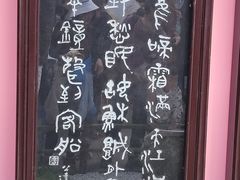 烏啼霜滿天江
對愁眠姑蘇城外
半鐘聲到客船